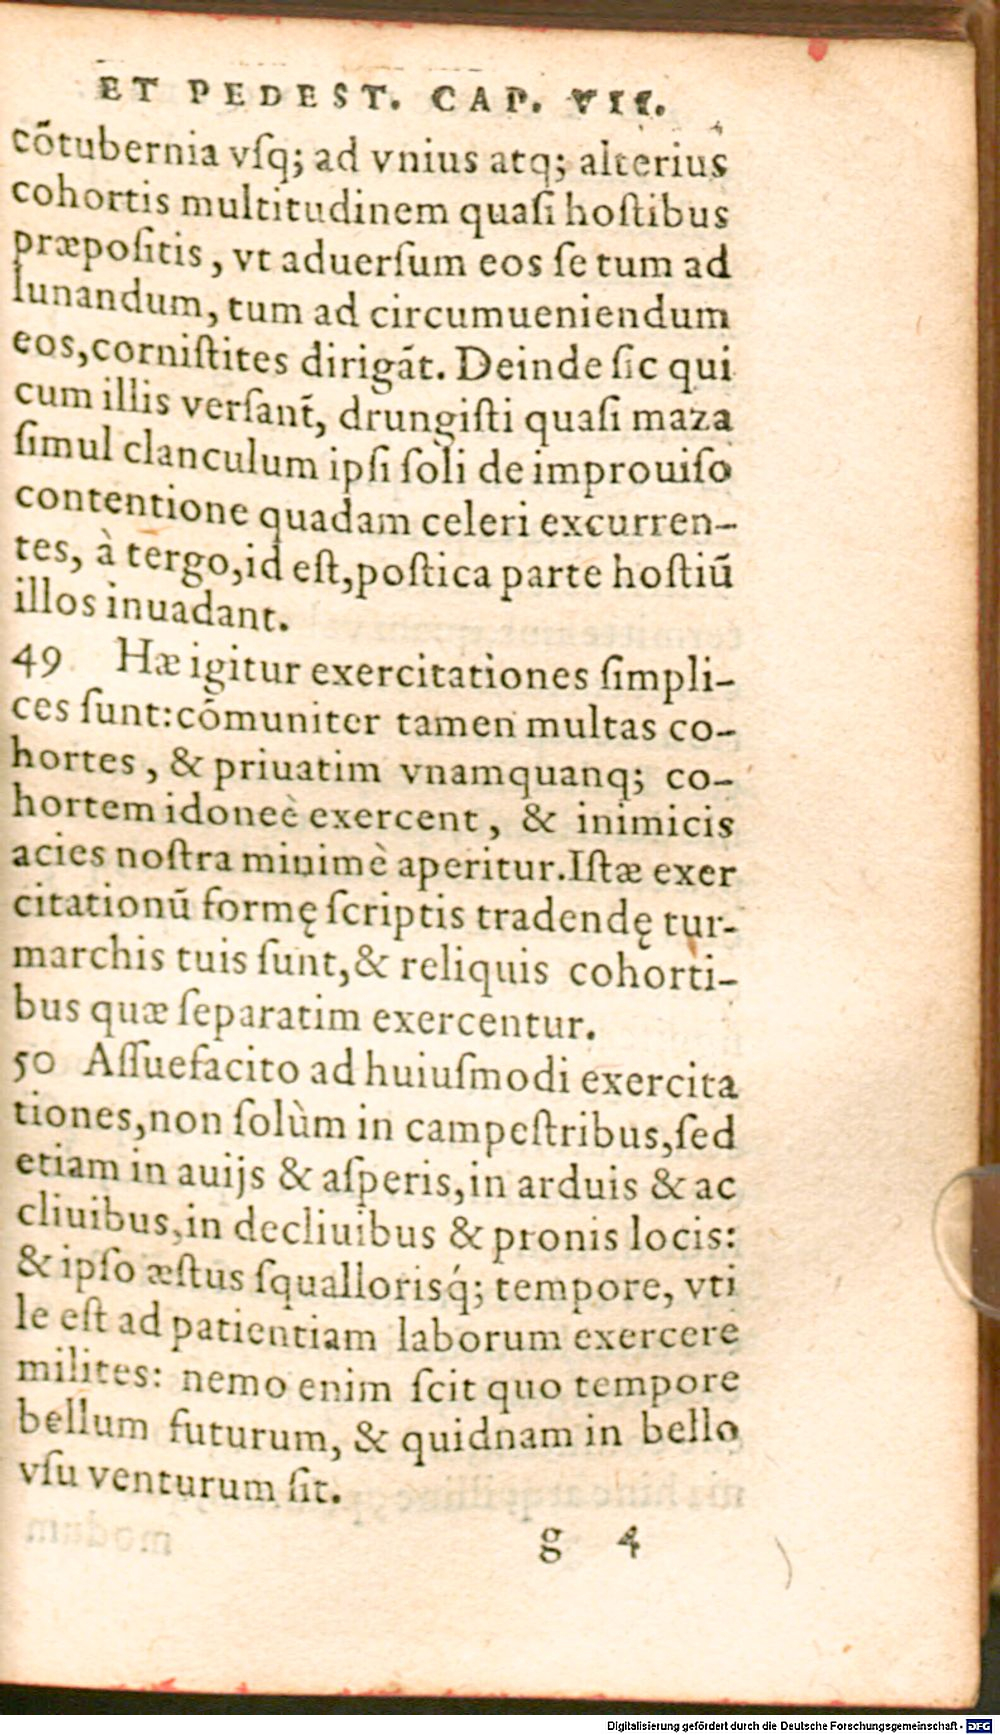 ET PEDEST. CAP. VII.
cõtubernia vſq; ad vnius atq; alterius
cohortis multitudinem quaſi hoſtibus
præpoſitis, vt aduerſum eos ſe tum ad
lunandum, tum ad circumueniendum
eos, corniſtites dirigāt. Deinde ſic qui
cum illis verſant̃, drungiſti quaſi maza
ſimul clanculum ipſi ſoli de improuiſo
contentione quadam celeri excurren-
tes, à tergo, id eſt, poſtica parte hoſtiũ
illos inuadant.
49 Hæ igitur exercitationes ſimpli-
ces ſunt: cõmuniter tamen multas co-
hortes, & priuatim vnamquanq; co-
hortem idoneè exercent, & inimicis
acies noſtra minimè aperitur. Iſtæ exer
citationũ formę ſcriptis tradendę tur-
marchis tuis ſunt, & reliquis cohorti-
bus quæ ſeparatim exercentur.
50 Aſſuefacito ad huiuſmodi exercita
tiones, non ſolùm in campeſtribus, ſed
etiam in auijs & aſperis, in arduis & ac
cliuibus, in decliuibus & pronis locis:
& ipſo æſtus ſqualloriſq́; tempore, vti
le eſt ad patientiam laborum exercere
milites: nemo enim ſcit quo tempore
bellum futurum, & quidnam in bello
vſu venturum ſit.
g 4
Digitalisierung gefördert durch die Deutsche Forschungsgemeinschaft - DFG